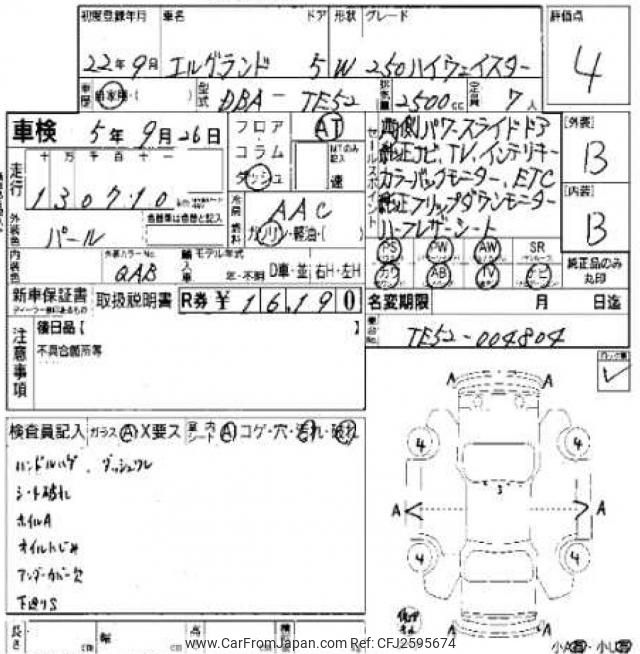 初度登録年月 車名 ドア 形状 グレード 評価点
22年9月 エルグランド 5 W 250ハイウェイスター 4
車歴 自家用・( ) 型式 DBA-TE52 排気量 2500cc 定員 7人
車検 5年9月26日 フロア AT
コラム MTのみ記入
ダッシュ 速
セールスポイント
両側パワースライドドア
純正ナビ、TV、インテリキー
カラーバックモニター、ETC
純正フリップダウンモニター
ハーフレザーシート
[外装] B
[内装] B
走行 十 万 千 百 十 一
130710 km
冷房 AAC
燃料 ガソリン・軽油・( )
外装色 パール 色替車は色替と記入
PS PW AW SR
カワ AB TV ナビ
純正品のみ丸印
内装色 外装カラーNo. QAB 輸入車 モデル年式 年・不明 D車・並 右H・左H
新車保証書 取扱説明書 R券 ¥ 16,190
名変期限 月 日迄
車台No. TE52-004804
注意事項
後日品【 】
不具合箇所等
検査員記入 ガラス A X要ス 室内シート A コゲ・穴・汚れ・破れ
ハンドルハゲ、ダッシュワレ
シート破れ
ホイルA
オイルにじみ
アンダーカバー欠
下廻りS
A A
4 4
A A
4 4
長さ cm 幅 cm 高 cm
www.CarFromJapan.com Ref: CFJ2595674